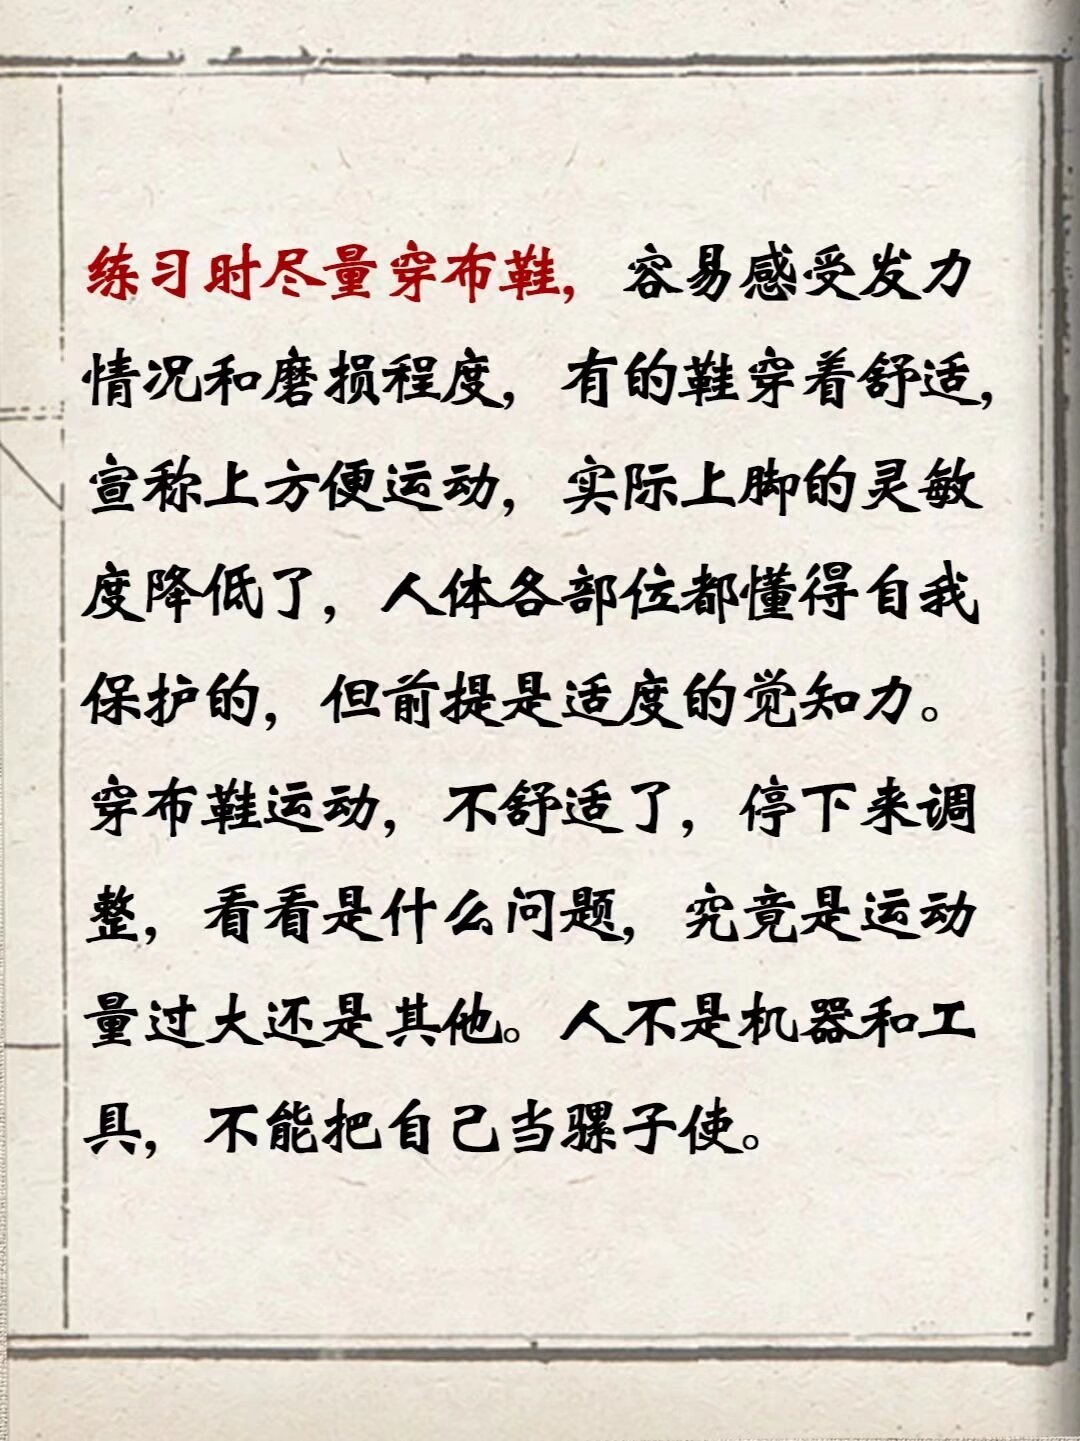 练习时尽量穿布鞋，容易感受发力
情况和磨损程度，有的鞋穿着舒适，
宣称上方便运动，实际上脚的灵敏
度降低了，人体各部位都懂得自我
保护的，但前提是适度的觉知力。
穿布鞋运动，不舒适了，停下来调
整，看看是什么问题，究竟是运动
量过大还是其他。人不是机器和工
具，不能把自己当骡子使。